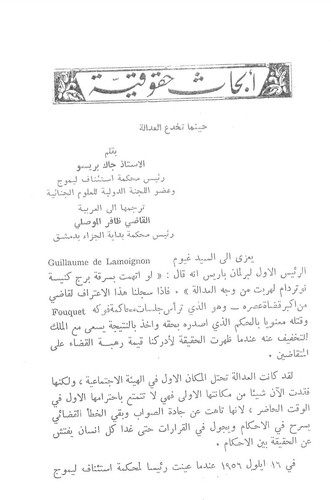 أبحاث حقوقية
حينما تخدع العدالة
بقلم
الاستاذ جاك بريسو
رئيس محكمة استئناف ليموج
وعضو اللجنة الدولية للعلوم الجنائية
ترجمها الى العربية
القاضي ظافر الموصلي
رئيس محكمة بداية الجزاء بدمشق
يعزى الى السيد غيوم Guillaume de Lamoignon
الرئيس الاول لبرلمان باريس انه قال : « لو اتهمت بسرقة برج كنيسة
نوتردام لهربت من وجه العدالة » . فاذا سجلنا هذا الاعتراف لقاضي
من اكبر قضاة عصره ــ وهو الذي ترأس جلسات محاكمة فوكه Fouquet
وقتله معنويا بالحكم الذي اصدره بحقه واخذ بالنتيجة يسعى مع الملك
للتخفيف عنه عندما ظهرت الحقيقة لأدركنا قيمة رهبة القضاء على
المتقاضين .
لقد كانت العدالة تحتل المكان الاول في الهيئة الاجتماعية ، ولكنها
فقدت الآن شيئا من مكانتها الاولى فهي لا تتمتع باحترامها الاول في
الوقت الحاضر ، لانها تاهت عن جادة الصواب وبقي الخطأ القضائي
يسرح في الاحكام ويجول في القرارات حتى غدا كل انسان يفتش
عن الحقيقة بين الاحكام .
في ١٦ ايلول ١٩٥٦ عندما عينت رئيسا لمحكمة استئناف ليموج